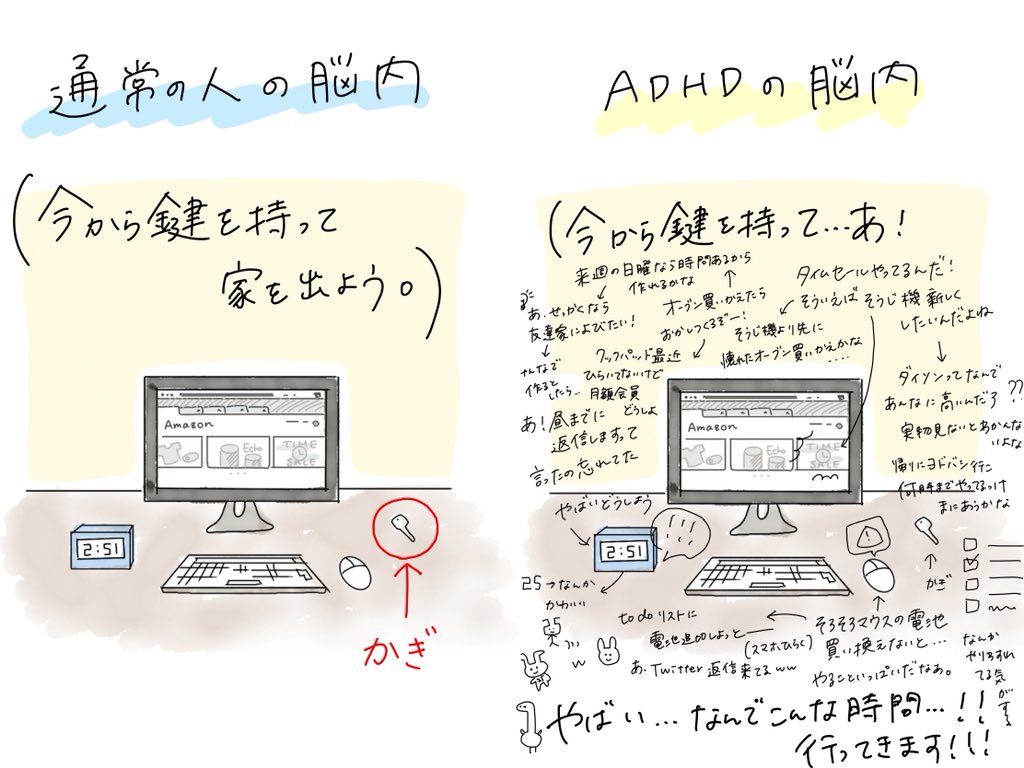 通常の人の脳内
(今から鍵を持って
家を出よう。)
Amazon
Echo
TIME
SALE
2:51
かぎ
ADHDの脳内
(今から鍵を持って…あ!
タイムセールやってるんだ!
そういえばそうじ機新しく
したいんだよね
ダイソンってなんで
あんなに高いんだろ??
実物見ないとあかんな
いよな
帰りにヨドバシ行こ
何時までやってるっけ
まにあうかな
そうじ機より先に
壊れたオーブン買いかえかな
....
オーブン買いかえたら
おかしつくるぞー!
来週の日曜なら時間あるから
作れるかな
あ、せっかくなら
友達家によびたい!
みんなで
作ると
したら…
クックパッド最近
ひらいてないけど
月額会員
どうしよ
あ!昼までに
返信しますって
言ったの忘れてた
やばいどうしよう
Amazon
Echo
TIME
SALE
2:51
!!!
25→なんか
かわいい
25
w
!
かぎ
そろそろマウスの電池
買い換えないと…
やること いっぱいだなあ。
to do リストに
電池追加しよっと
(スマホひらく)
あ、Twitter返信来てるww
なんか
やりわすれ
てる気
がする
やばい…なんでこんな時間…!!
行ってきます!!!